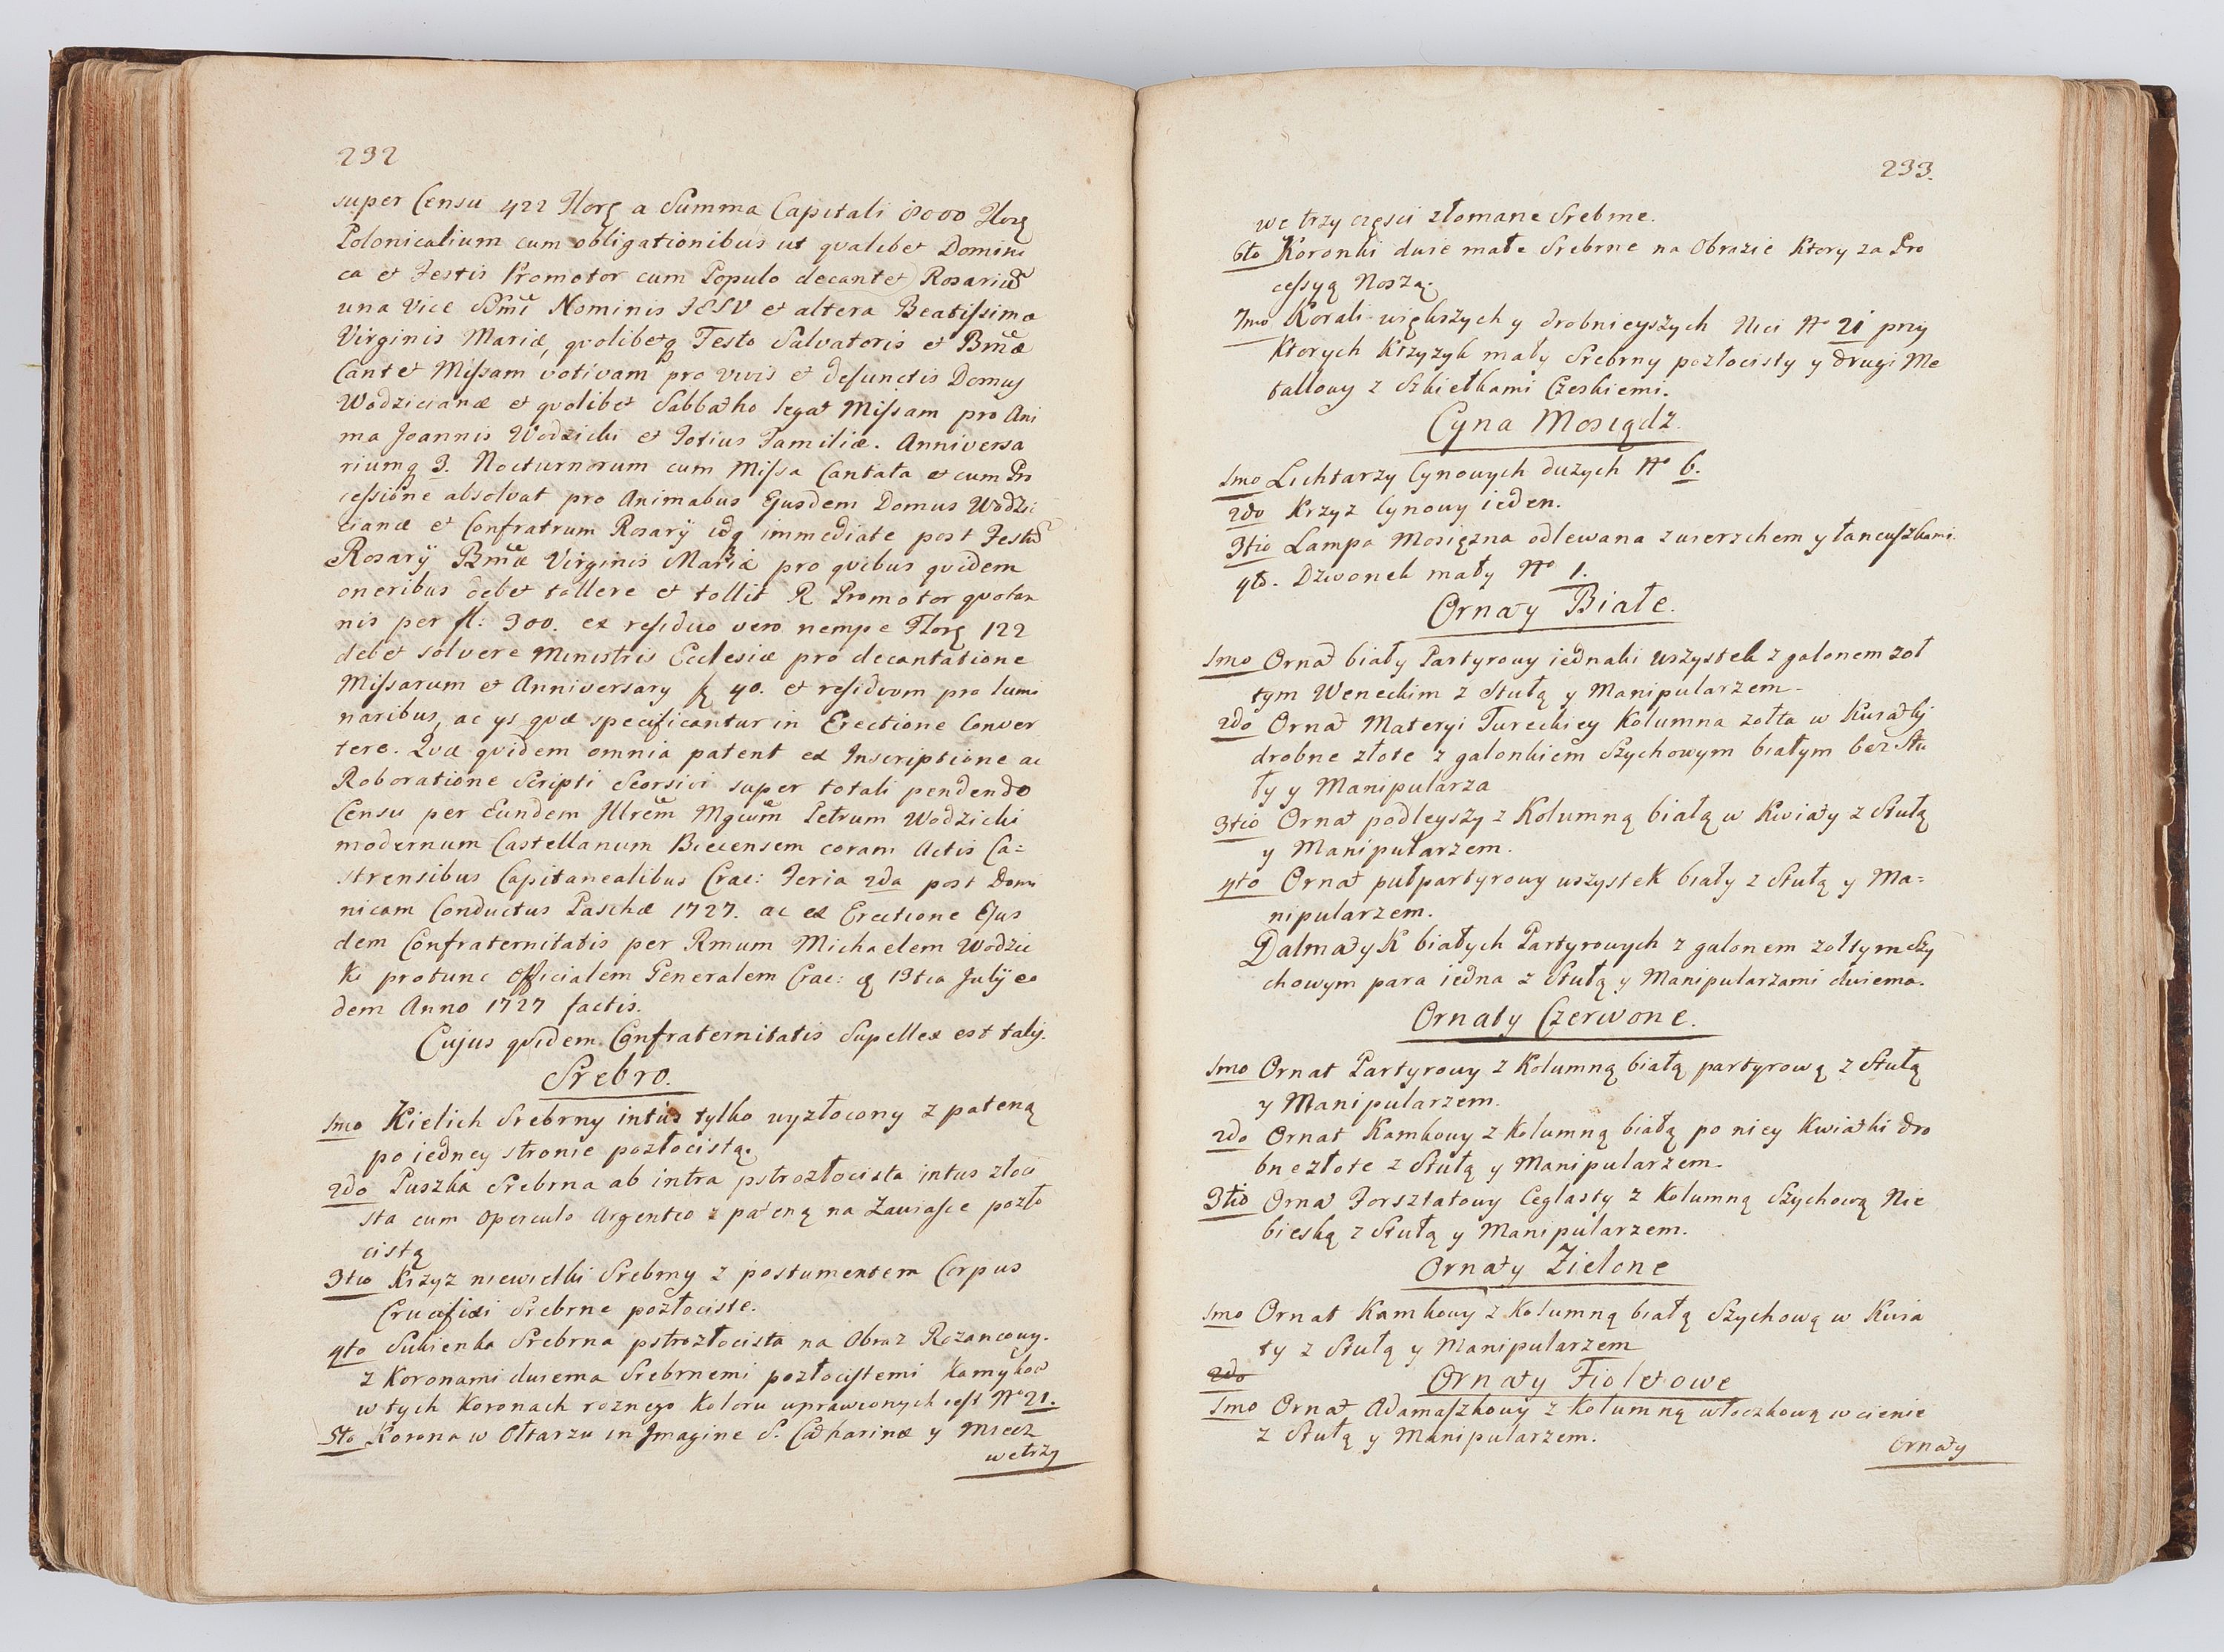 232
super Censu 422 Florę a Summa Capitali 8000 Florę
Polonicalium cum obligationibus ut qvalibet Domini
ca et Festis Promotor cum Populo decantet Rosariũ
una vice SSmi Nominis JESV et altera Beatissimæ
Virginis Mariæ, qvolibetq Festo Salvatoris et Bmæ
Cantet Missam votivam pro vivis et defunctis Domus
Wodzicianæ et qvolibet Sabbatho legat Missam pro Ani
ma Joannis Wodzicki et Totius Familiæ. Anniversa
riumq 3. Nocturnorum cum Missa Cantata et cum Pro
cessione absolvat pro Animabus Ejusdem Domus Wodzi
cianæ et Confratrum Rosarÿ idq immediate post Festũ
Rosarÿ Bmæ Virginis Mariæ pro qvibus qvidem
oneribus debet tollere et tollit R Promotor qvotan
nis per fl: 300. ex residuo vero nempe Florę 122
debet solvere Ministris Ecclesiæ pro decantatione
Missarum et Anniversary f 40. et residvum pro lumi
naribus, ac ys qvæ specificantur in Erectione Conver
tere. Qvæ qvidem omnia patent ex Inscriptione ac
Roboratione Scripti Seorsivi super totali pendendo
Censu per Eundem Jllrem Mgcum Petrum Wodzicki
modernum Castellanum Biecensem coram Actis Ca=
strensibus Capitanealibus Crac: Feria 2da post Domi
nicam Conductus Paschæ 1727. ac ex Erectione Ejus
dem Confraternitatis per Rmum Michaelem Wodzic
ki protunc Officialem Generalem Crac: 19tia Julÿ eo
dem Anno 1727 factis.
Cujus qvidem Confraternitatis Supellex est talis.
Srebro.
1mo Kielich Srebrny intus tylko wyzłocony z pateną
po iedney stronie pozłocistą.
2do Puszka Srebrna ab intra pstrozłocista intus złoci
sta cum operculo Argenteo z pateną na Zawiasce pozło
cistą
3tio Krzyz niewielki Srebrny z postumentem Corpus
Crucifixi Srebrne pozłociste.
4to Sukienka Srebrna pstrozłocista na Obraz Rozancowy.
z Koronami dwiema Srebrnemi pozłocistemi Kamykow
w tych Koronach roznego Koloru uprawionych iest No 21.
5to Korona w Ołtarzu in Jmagine S. Catharinæ y Miecz
we trzy
233.
we trzy częsci złomane Srebrne.
6to Koronki dwie małe Srebrne na Obrazie Ktory za Pro
cessyą Noszą.
7mo Korali większych y drobnieyszych Nici No 21 przy
Ktorych Krzyzyk mały Srebrny pozłocisty y drugi Me
tallowy z Szkiełkami Czeskiemi.
Cyna Mosiądz.
1mo Lichtarzy Cynowych duzych No 6.
2do Krzyz Cynowy ieden.
3tio Lampa Mosięzna odlewana z wierzchem y łancuszkami.
4to. Dzwonek mały No 1.
Ornaty Białe.
1mo Ornat biały Partyrowy iednaki wszystek z galonem zoł
tym Weneckim z Stułą y Manipularzem.
2do Ornat Materyi Tureckiey Kolumna zołta w Kwiatki
drobne złote z galonkiem Szychowym białym bez Stu
ły y Manipularza
3tio Ornat podleyszy z Kolumną białą w Kwiaty z Stułą
y Manipularzem.
4to Ornat pułpartyrowy wszystek biały z Stułą y Ma=
nipularzem.
Dalmatyk białych Partyrowych z galonem zołtym Szy
chowym para iedna z Stułą y Manipularzami dwiema.
Ornaty Czerwone.
1mo Ornat Partyrowy z Kolumną białą partyrową z Stułą
y Manipularzem.
2do Ornat Kamkowy z Kolumną białą po niey Kwiatki dro
bne złote z Stułą y Manipularzem.
3tio Ornat Forsztatowy Ceglasty z Kolumną Szychową Nie
bieską z Stułą y Manipularzem.
Ornaty Zielone
1mo Ornat Kamkowy z Kolumną białą Szychową w Kwia
ty z Stułą y Manipularzem
2do
Ornaty Fioletowe
1mo Ornat Adamaszkowy z Kolumną włoczkową w cienie
z Stułą y Manipularzem.
Ornaty